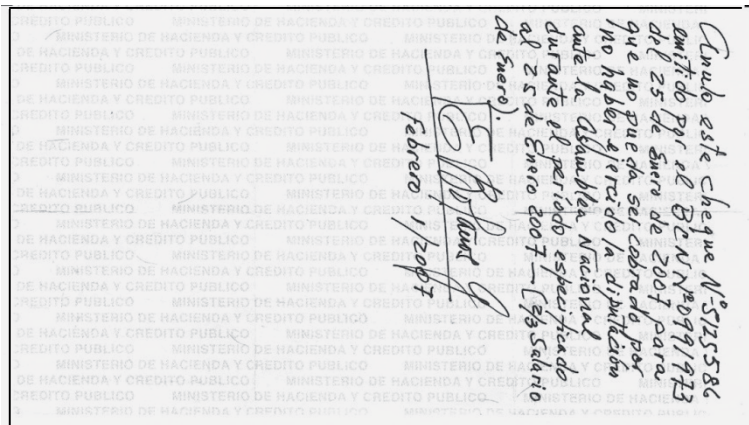 Anulo este cheque Nº 5125586
emitido por el BCN/Nº 291973
del 25 de Enero de 2007 para
que no sea cobrado por
no haber ejercido la diputación
ante la Asamblea Nacional
durante el período especificado
al 25 de Enero 2007 - 2/3 salario
de Enero).
febrero /2007
MINISTERIO DE HACIENDA Y CREDITO PUBLICO